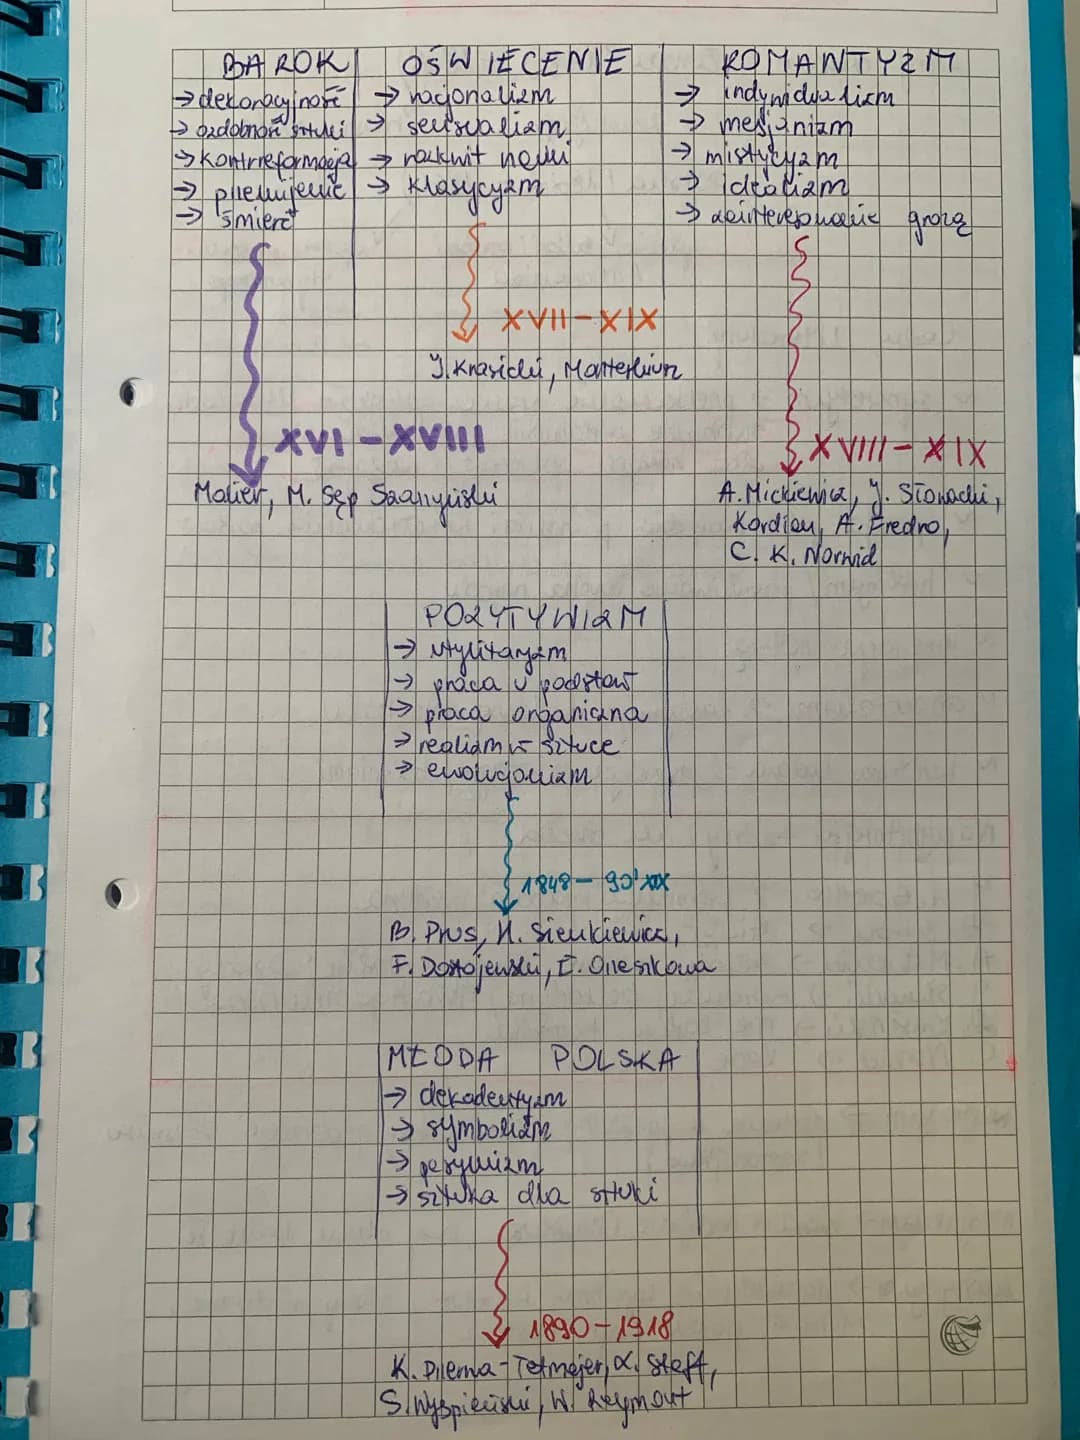 BAROK
→ dekoracyjność
→ ozdobność sztuki
→ kontrreformacja
→ przemijenie
→ śmierć
XVI - XVIII
Molier, M. Sęp Szarzyński
OŚWIECENIE
→ racjonalizm
→ sensualizm
→ rozkwit nauki
→ klasycyzm
XVII - XIX
I. Krasicki,
ROMANTYZM
→ indywidualizm
→ mesjanizm
→ mistycyzm
→ idealizm
→ zainteresowanie grozą
XVIII - XIX
A. Mickiewicz, J. Słowacki,
Kordian, A. Fredro,
C. K. Norwid
POZYTYWIZM
→ utylitaryzm
→ praca u podstaw
→ praca organiczna
→ realizm w sztuce
→ ewolucjonizm
1848 - 90' XIX
B. Prus, H. Sienkiewicz,
F. Dostojewski, E. Orzeszkowa
MŁODA POLSKA
→ dekadentyzm
→ symbolizm
→ pesymizm
→ sztuka dla sztuki
1890 - 1918
K. Przerwa - Tetmajer, L. Staff,
S. Wyspiański, W. Reymont